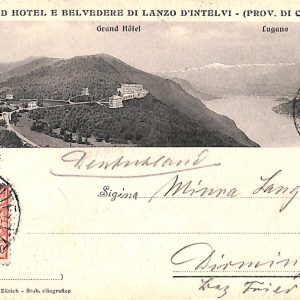 D HOTEL E BELVEDERE DI LANZO D'INTELVI - (PROV. DI C
Grand Hôtel
Lugano
Deutschland
Sigina Minna Lang
Dirming
Bez Trier
Zürich - Stab. eliografico